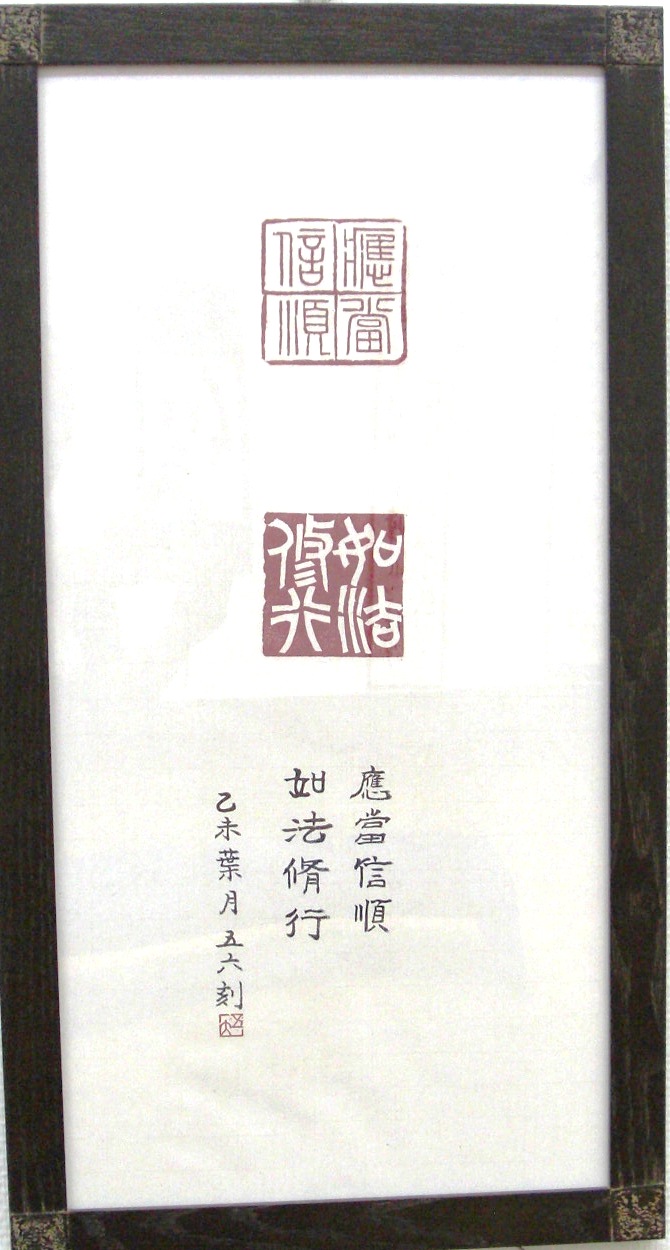 應當
信順
如法
修行
應當信順
如法脩行
乙未葉月 五六刻